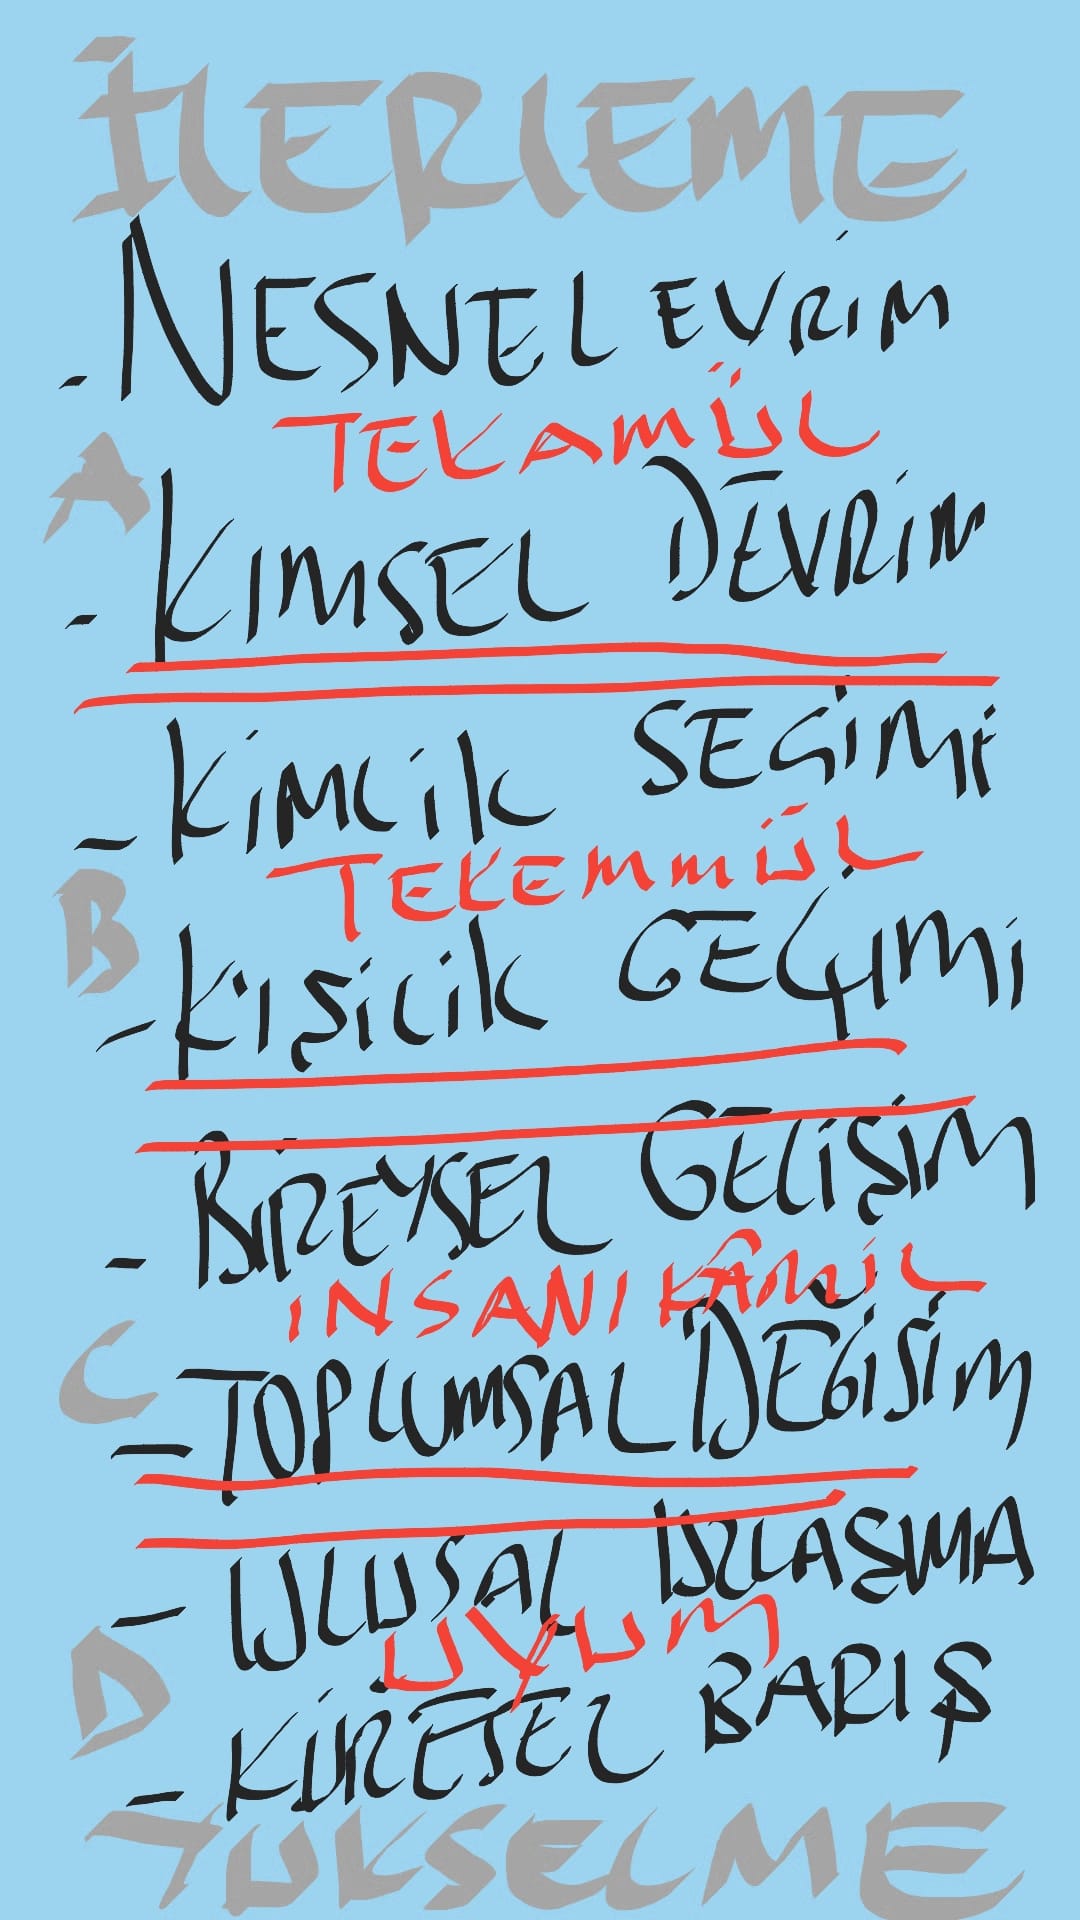 İLERLEME
- NESNEL EVRİM
TEKAMÜL
A
- KIMSEL DEVRİM
- KİMLİK SEÇİMİ
TEKEMMÜL
B
- KİŞİLİK GEÇİMİ
- BİREYSEL GELİŞİM
İNSANI KÂMİL
C
- TOPLUMSAL DEĞİŞİM
- ULUSAL UZLAŞMA
UYUM
D
- KÜRESEL BARIŞ
YÜKSELME